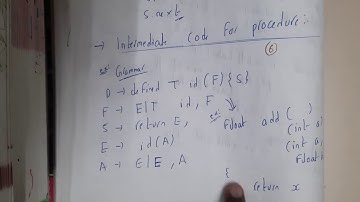 S next
→ Intermediate code For procedure:-
6
Grammar
D → defined T id (F) {S}
F → E|T id, F
S → return E,
Float add ( )
E → id(A)
(int a
A → E|E, A
(int a,
Float
{
return x